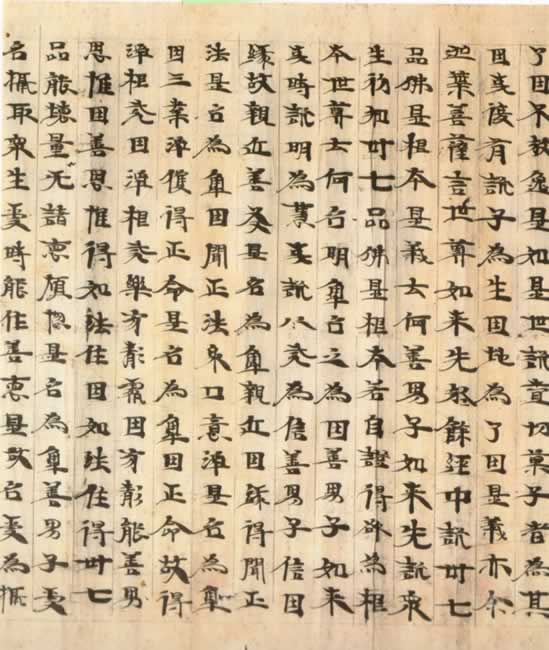 了因不放逸是如是世說責切菓子者為其
因或復有說子為生因地為了因是義亦尒
迦葉菩薩言世尊如来先於餘経中說卅七
品佛是根本是義云何善男子如来先說衆
生初知卅七品佛是根本若自證得欲為根
本世尊云何名明角名之為因善男子如来
或時說明為慧或說八戒為信善男子信因
縁故親近善友是名為角親近因縁得聞正
法是名為角因聞正法身口意淨是名為角
因三業淨獲得正命是名為角因正命故得
淨根戒因淨根戒樂寂靜因寂靜能善男
思惟因善思惟得如法住因如法住得卅七
品能壊量无諸悪煩惱是名為角善男子受
名概取衆生受時能作善悪是故名受為概